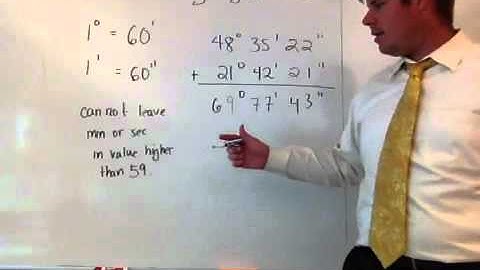 1° = 60'
1' = 60"
cannot leave
min or sec
in value higher
than 59.
48° 35' 22"
+ 21° 42' 21"
69° 77' 43"